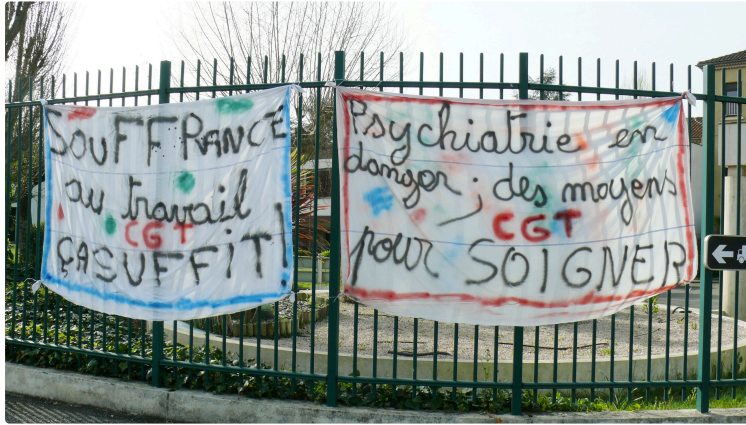 SOUFFRANCE
au travail
CGT
ÇA SUFFIT!
Psychiatrie en
danger; des moyens
CGT
pour SOIGNER